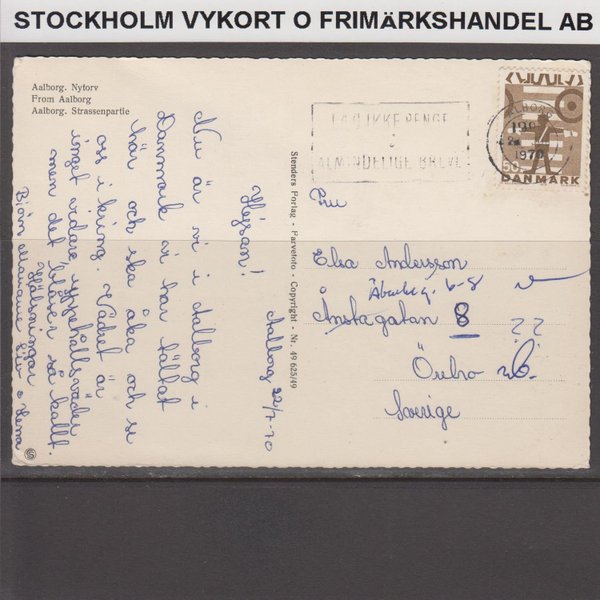 STOCKHOLM VYKORT O FRIMÄRKSHANDEL AB
Aalborg. Nytorv
From Aalborg
Aalborg. Strassenpartie
LÆG IKKE PENGE
I
ALMINDELIGE BREVE
AALBORG
1970
50
DANMARK
Aalborg 22/7-70
Hejsan!
Nu är vi i Aalborg i
Danmark vi har tältat
här och ska åka och se
oss i kring. Vädret är
inget vidare, uppehållsväder
men det blåser så kallt.
Hälsningar
Björn Marianne Siv o Lena
Stenders Forlag - Farvefoto - Copyright - Nr. 49 625/49
Fru
Elsa Andersson
6-8
Ånstagatan 8 ??
Örebro
Sverige